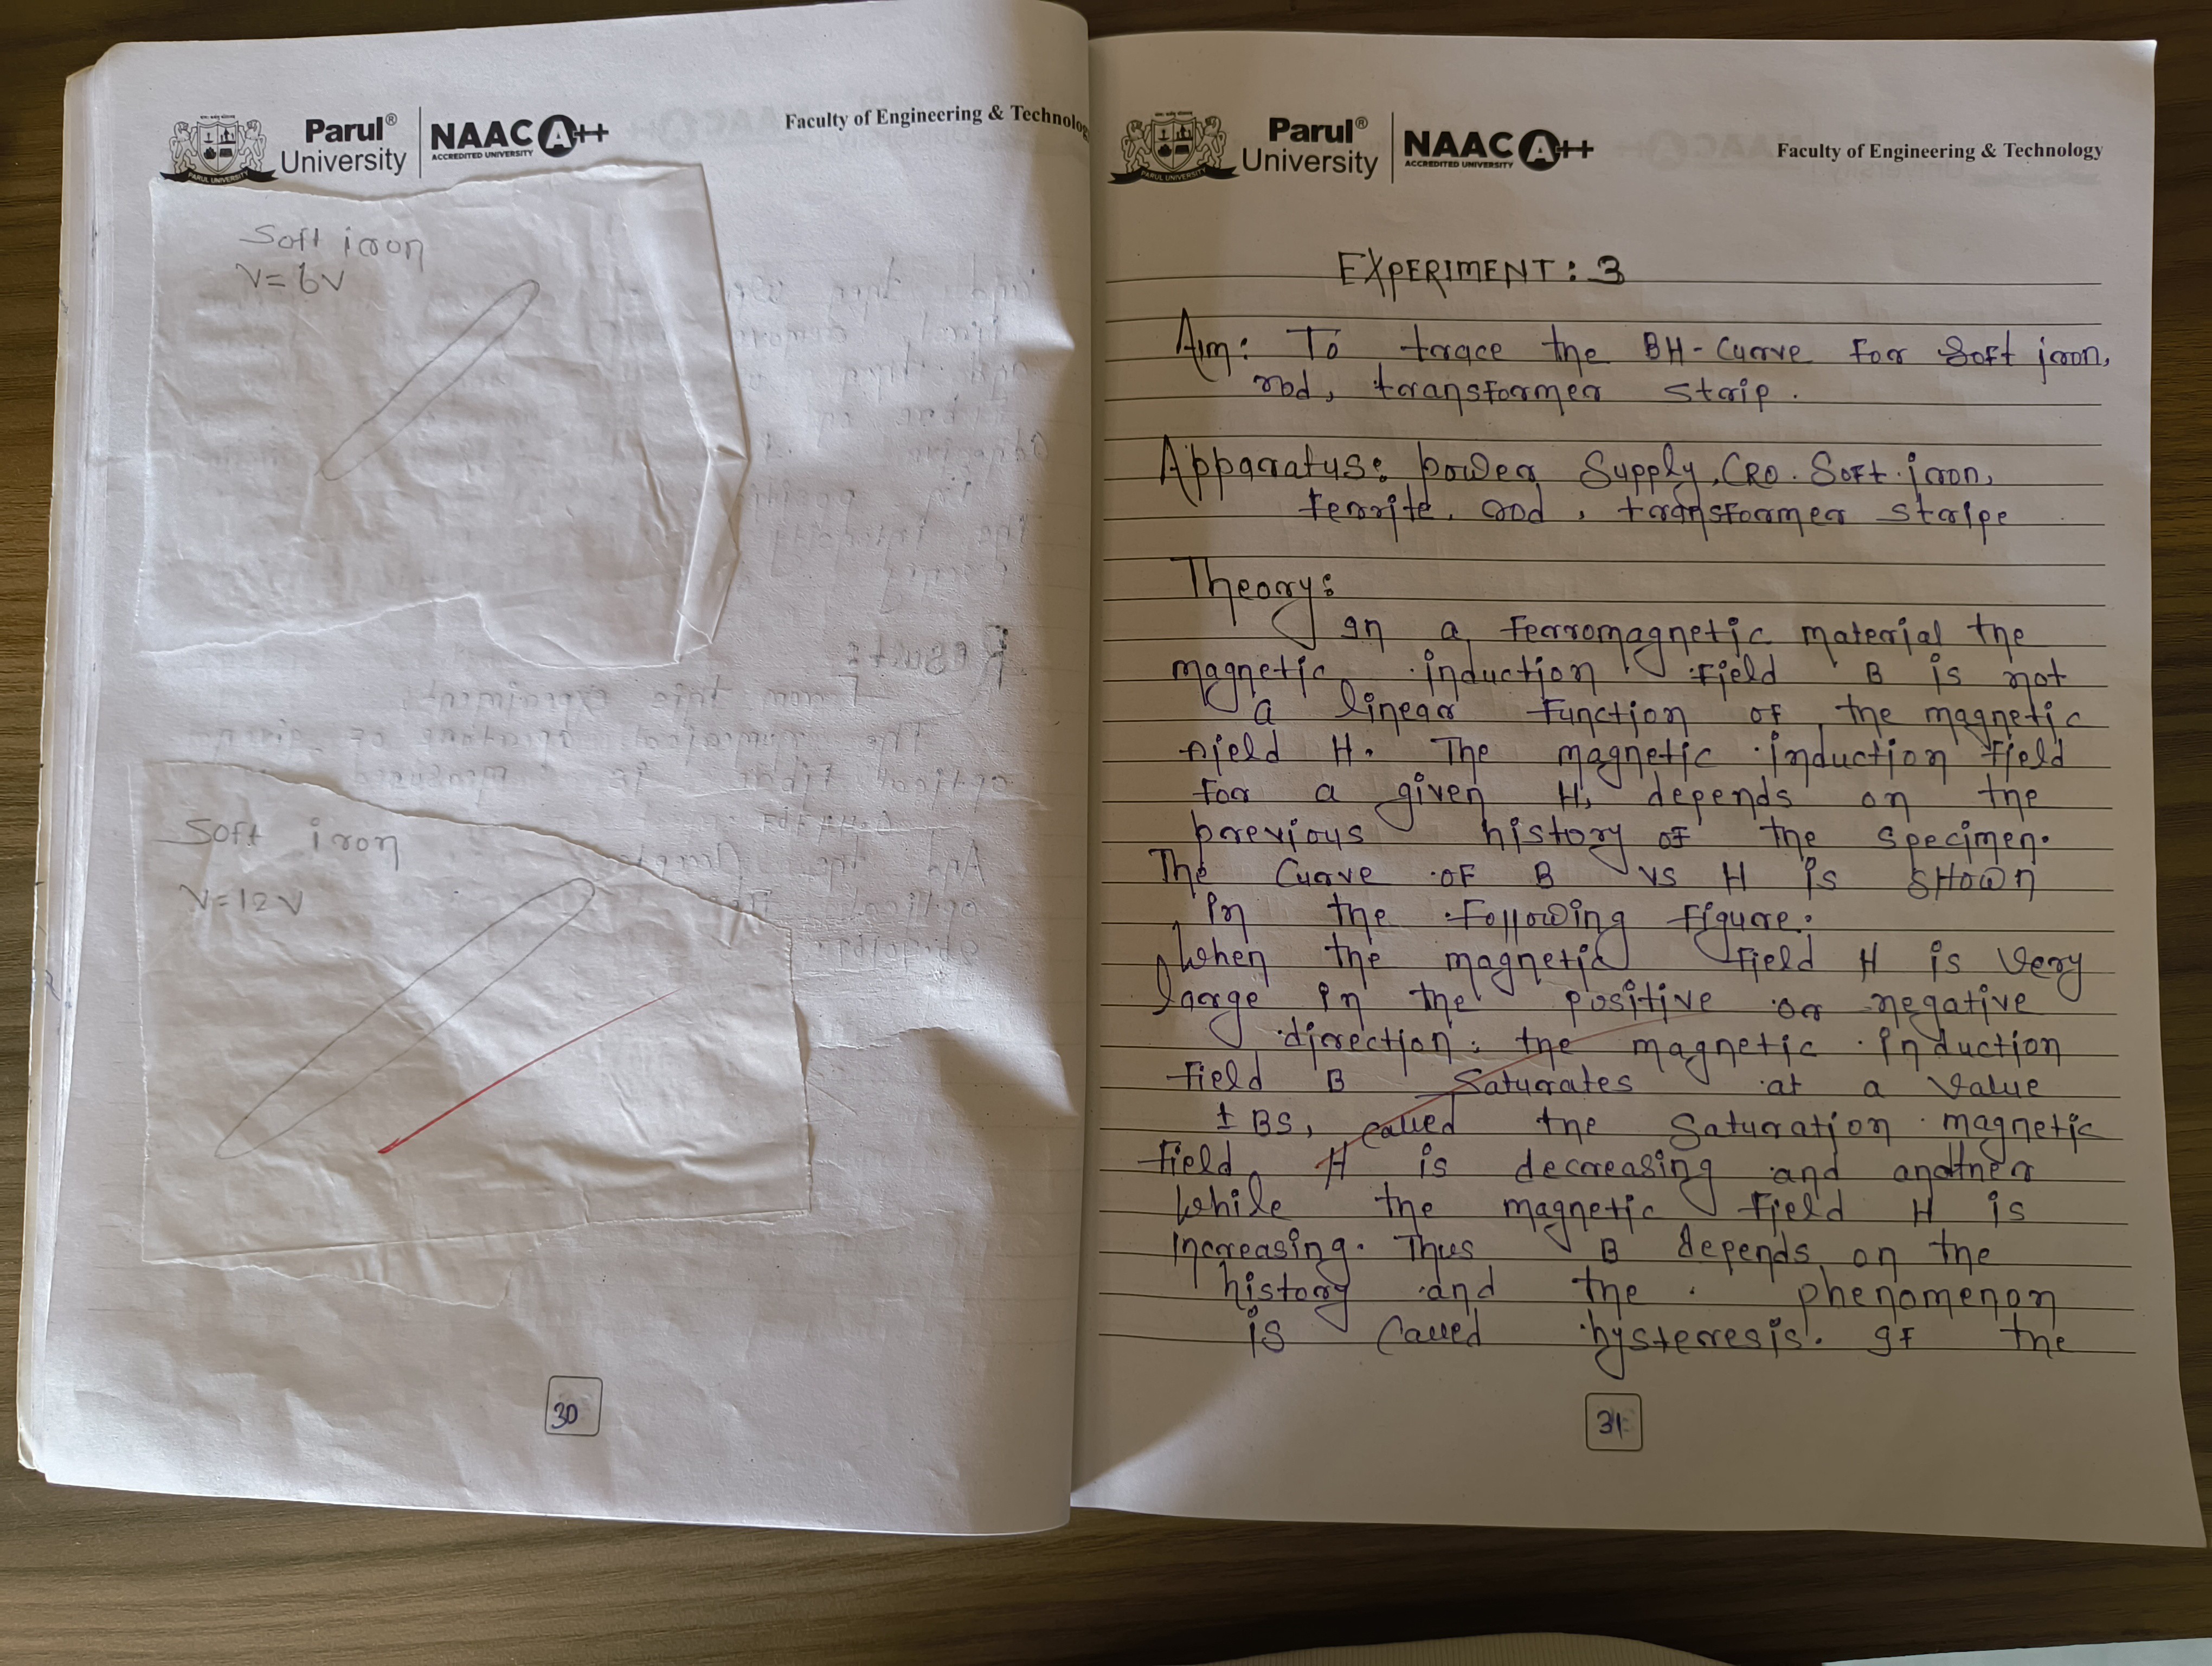 Parul® University
NAAC A++
ACCREDITED UNIVERSITY
PARUL UNIVERSITY
Faculty of Engineering & Technolog
Soft iron
V=6V
Soft iron
V=12V
30
Parul® University
NAAC A++
ACCREDITED UNIVERSITY
PARUL UNIVERSITY
Faculty of Engineering & Technology
EXPERIMENT: 3
Aim: To trace the BH-Curve for Soft iron,
rod, transformer strip.
Apparatus: power Supply, CRO. Soft.iron,
ferrite, rod, transformer stripe
Theory:
In a ferromagnetic material the
magnetic induction field B is not
a linear function of the magnetic
field H. The magnetic induction field
for a given H, depends on the
previous history of the specimen.
The Curve of B vs H is SHOWN
in the following figure:
When the magnetic field H is very
large in the positive or negative
direction: the magnetic induction
field B Saturates at a value
± BS, called the Saturation magnetic
field. H is decreasing and another
while the magnetic field H is
increasing. Thus B depends on the
history and the phenomenon
is called hysterresis. If the
31